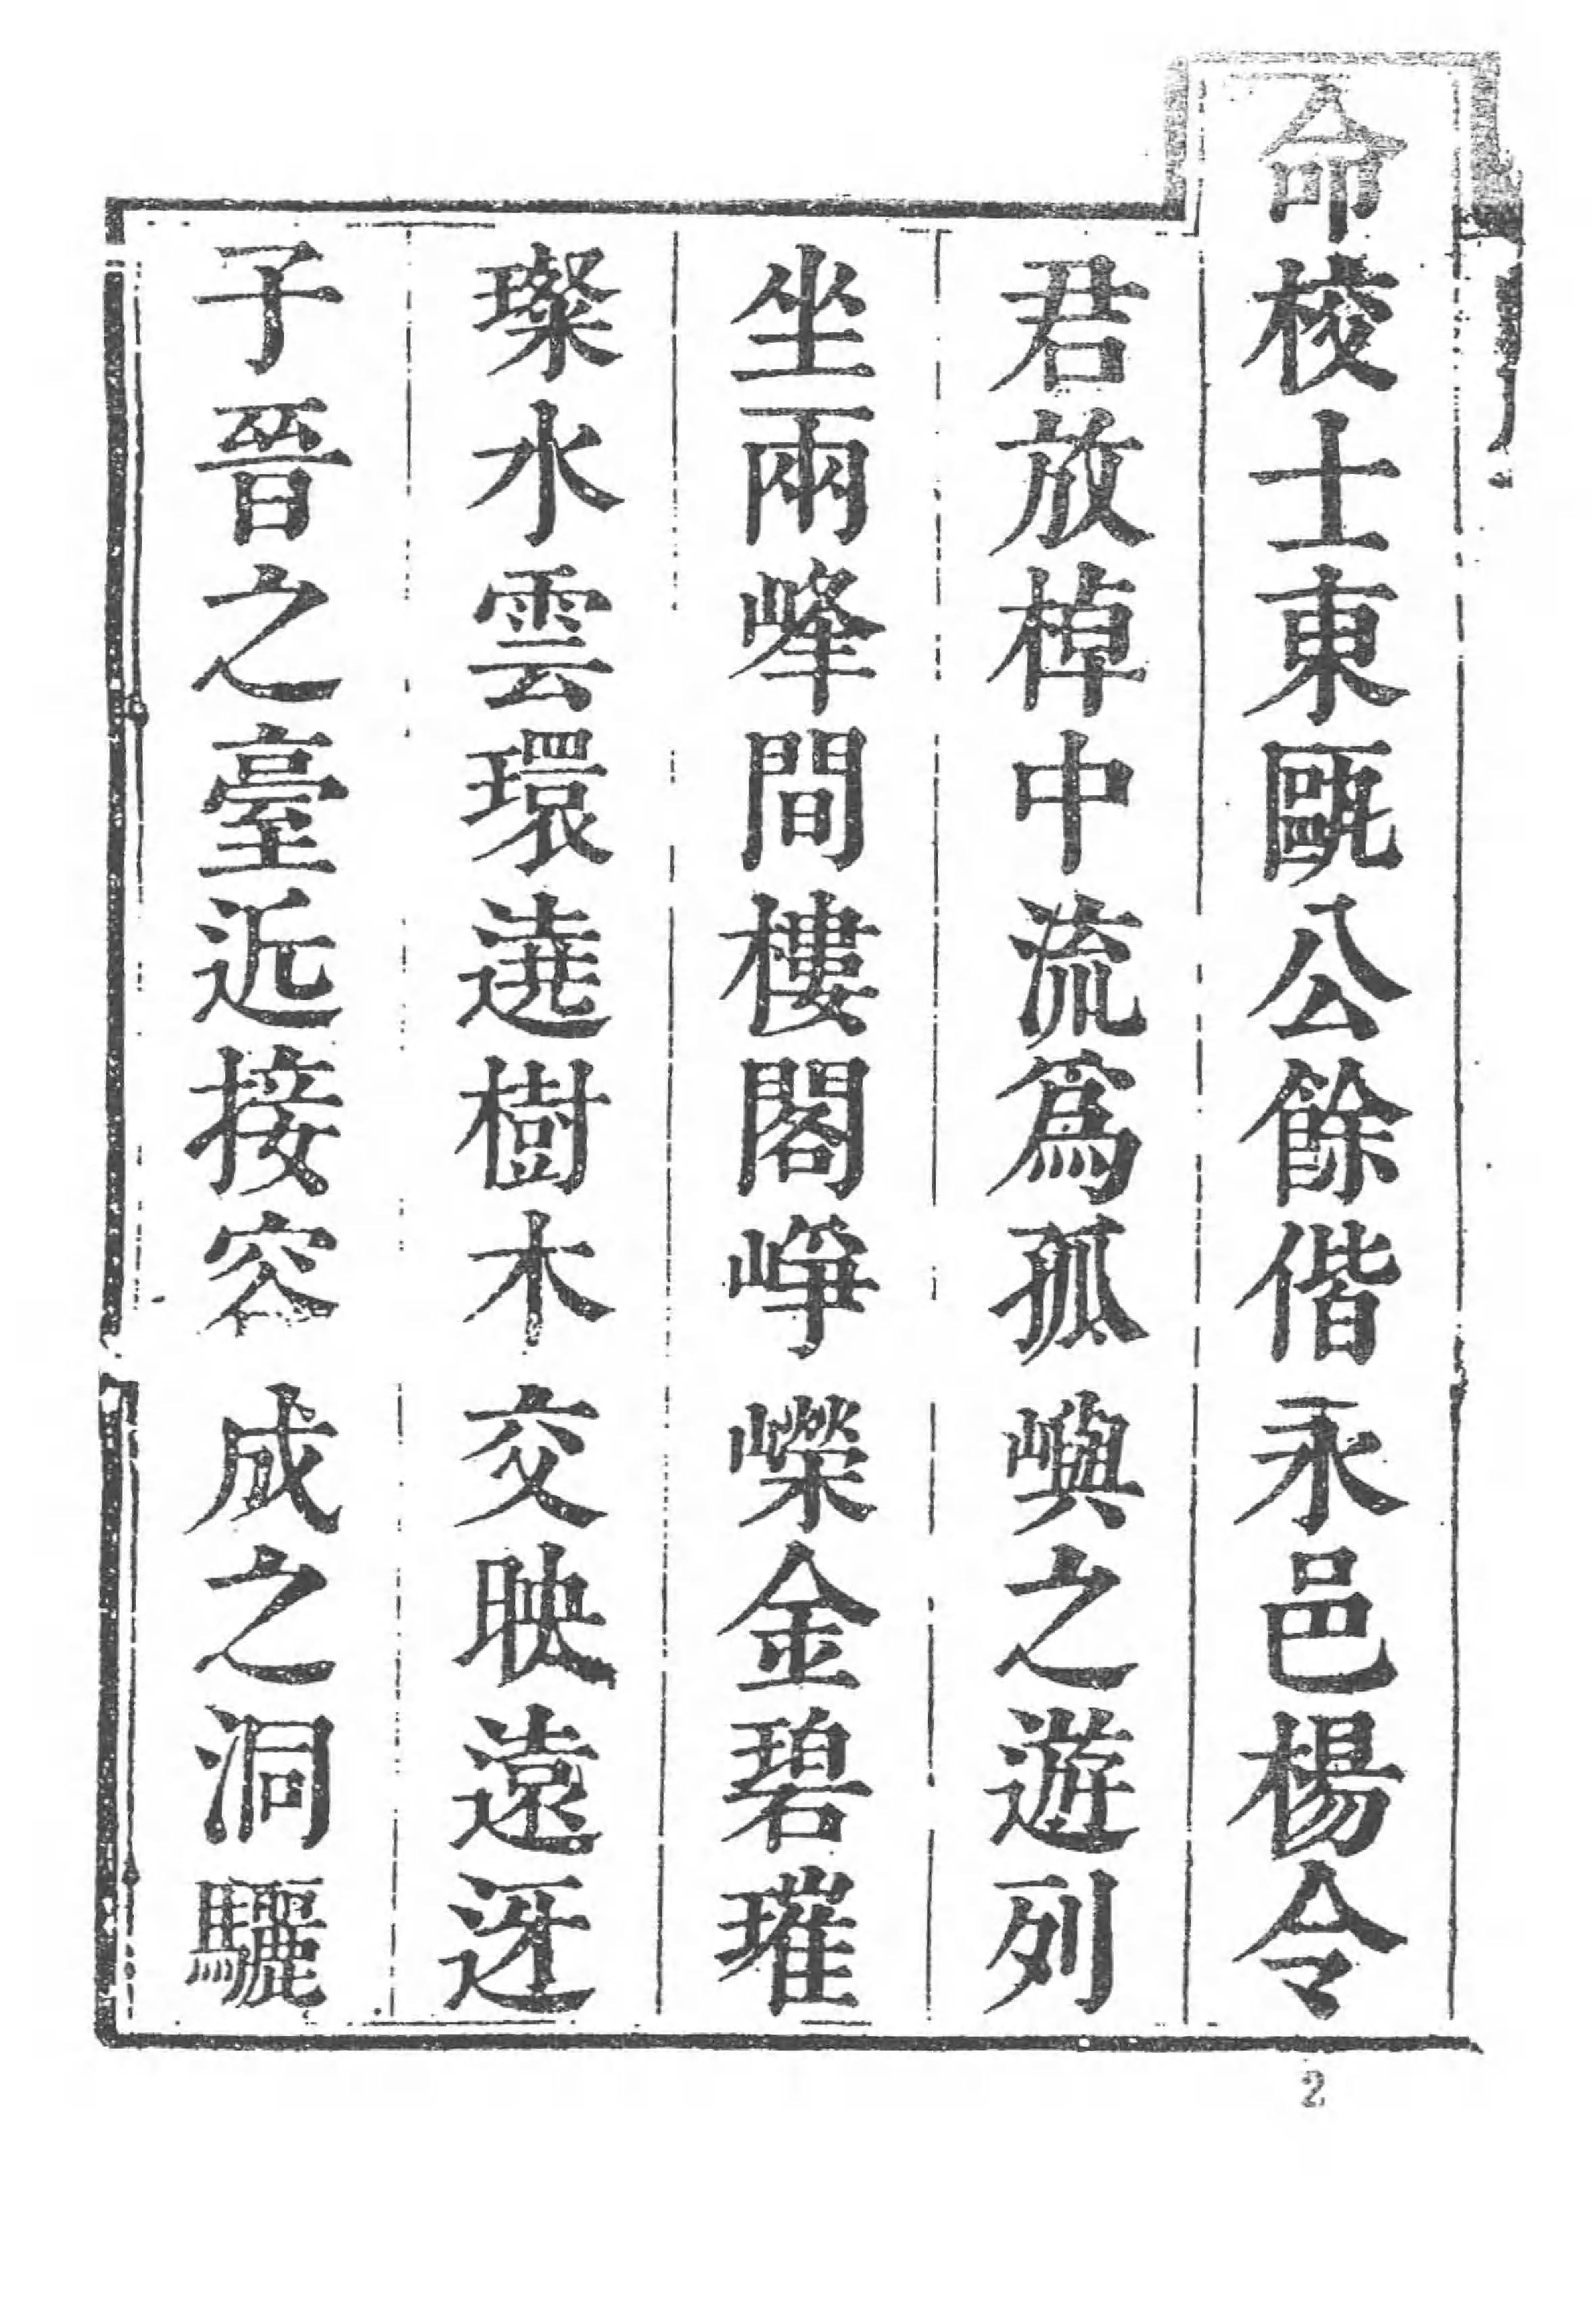 命校士東甌公餘偕永邑楊令
君放棹中流爲孤嶼之遊列
坐兩峰間樓閣崢嶸金碧璀
璨水雲環遶樹木交映遠迓
子晉之臺近接容成之洞驪
2